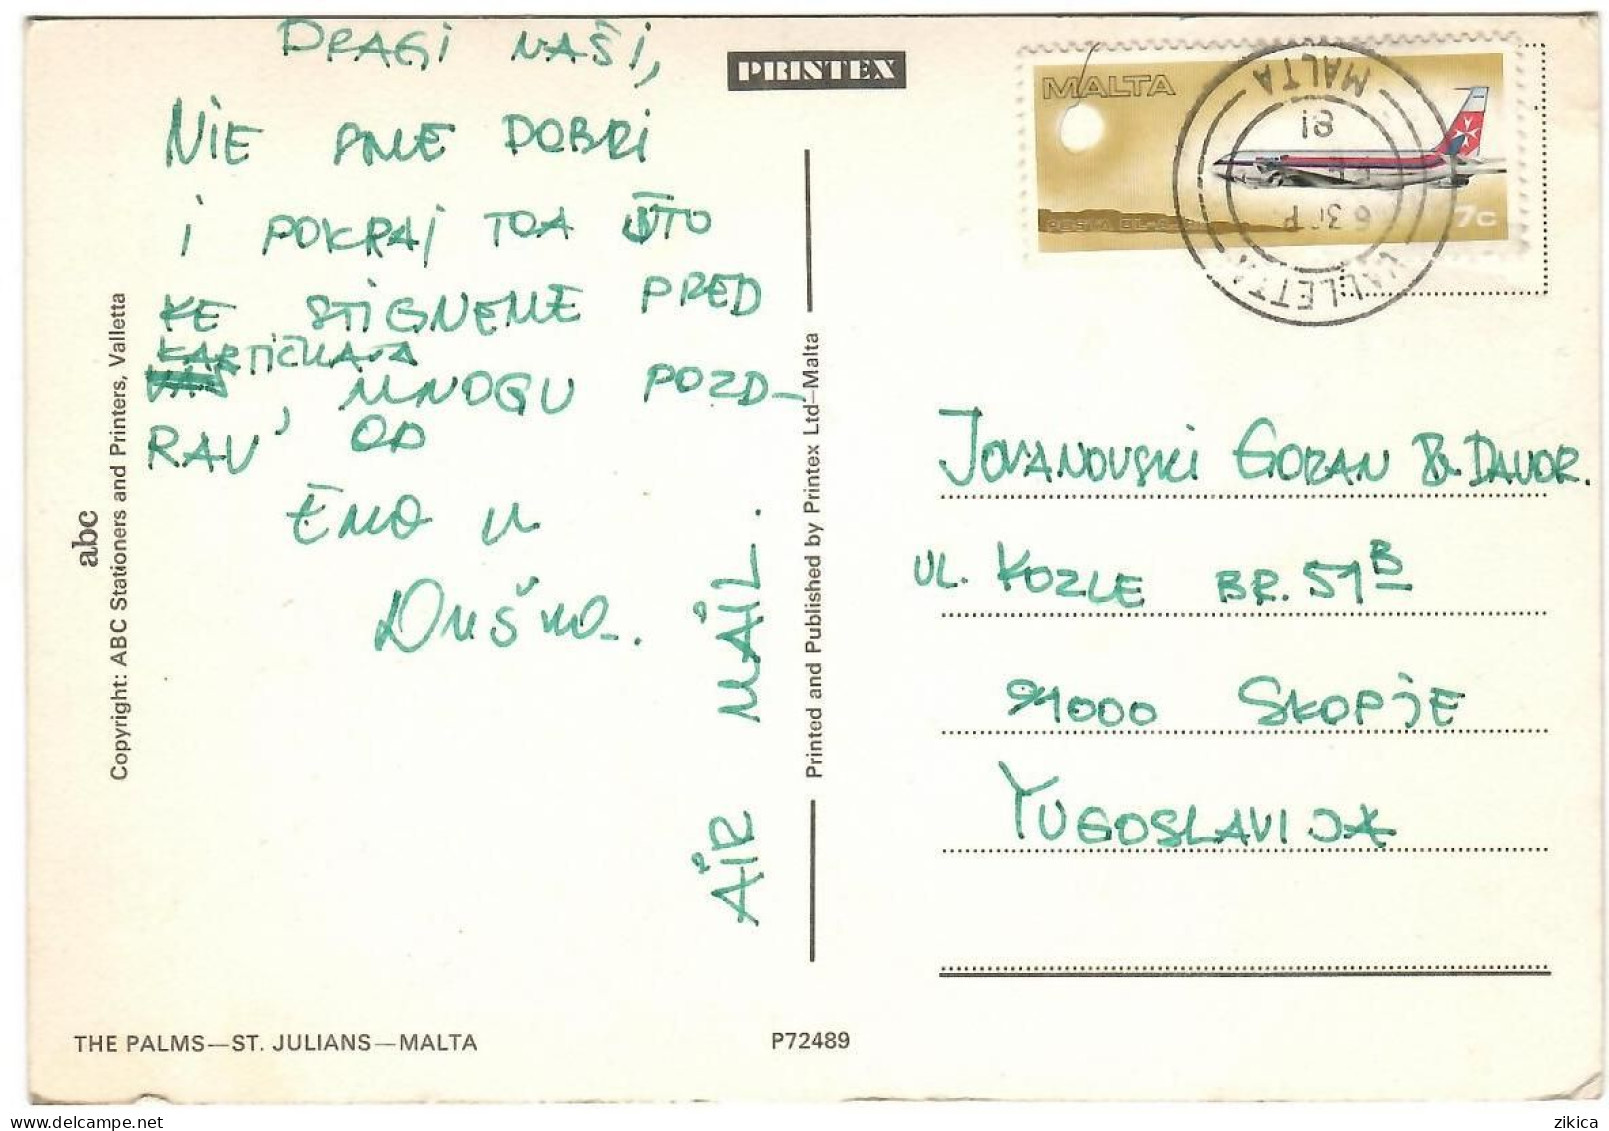 DRAGI NAŠI,
NIE SME DOBRI
I POKRAJ TOA ŠTO
KE STIGNEME PRED
KARTIČKATA
, MNOGU POZD-
RAV OD
EMO U
DUŠKO.
AIR MAIL.
PRINTEX
abc
Copyright: ABC Stationers and Printers, Valletta
Printed and Published by Printex Ltd—Malta
MALTA
POSTA
7c
VALLETTA
MALTA
81
JOVANOVSKI GORAN & DAVOR.
UL. KOZLE BR. 51B
91000 SKOPJE
YUGOSLAVIJA
THE PALMS—ST. JULIANS—MALTA
P72489
zikica